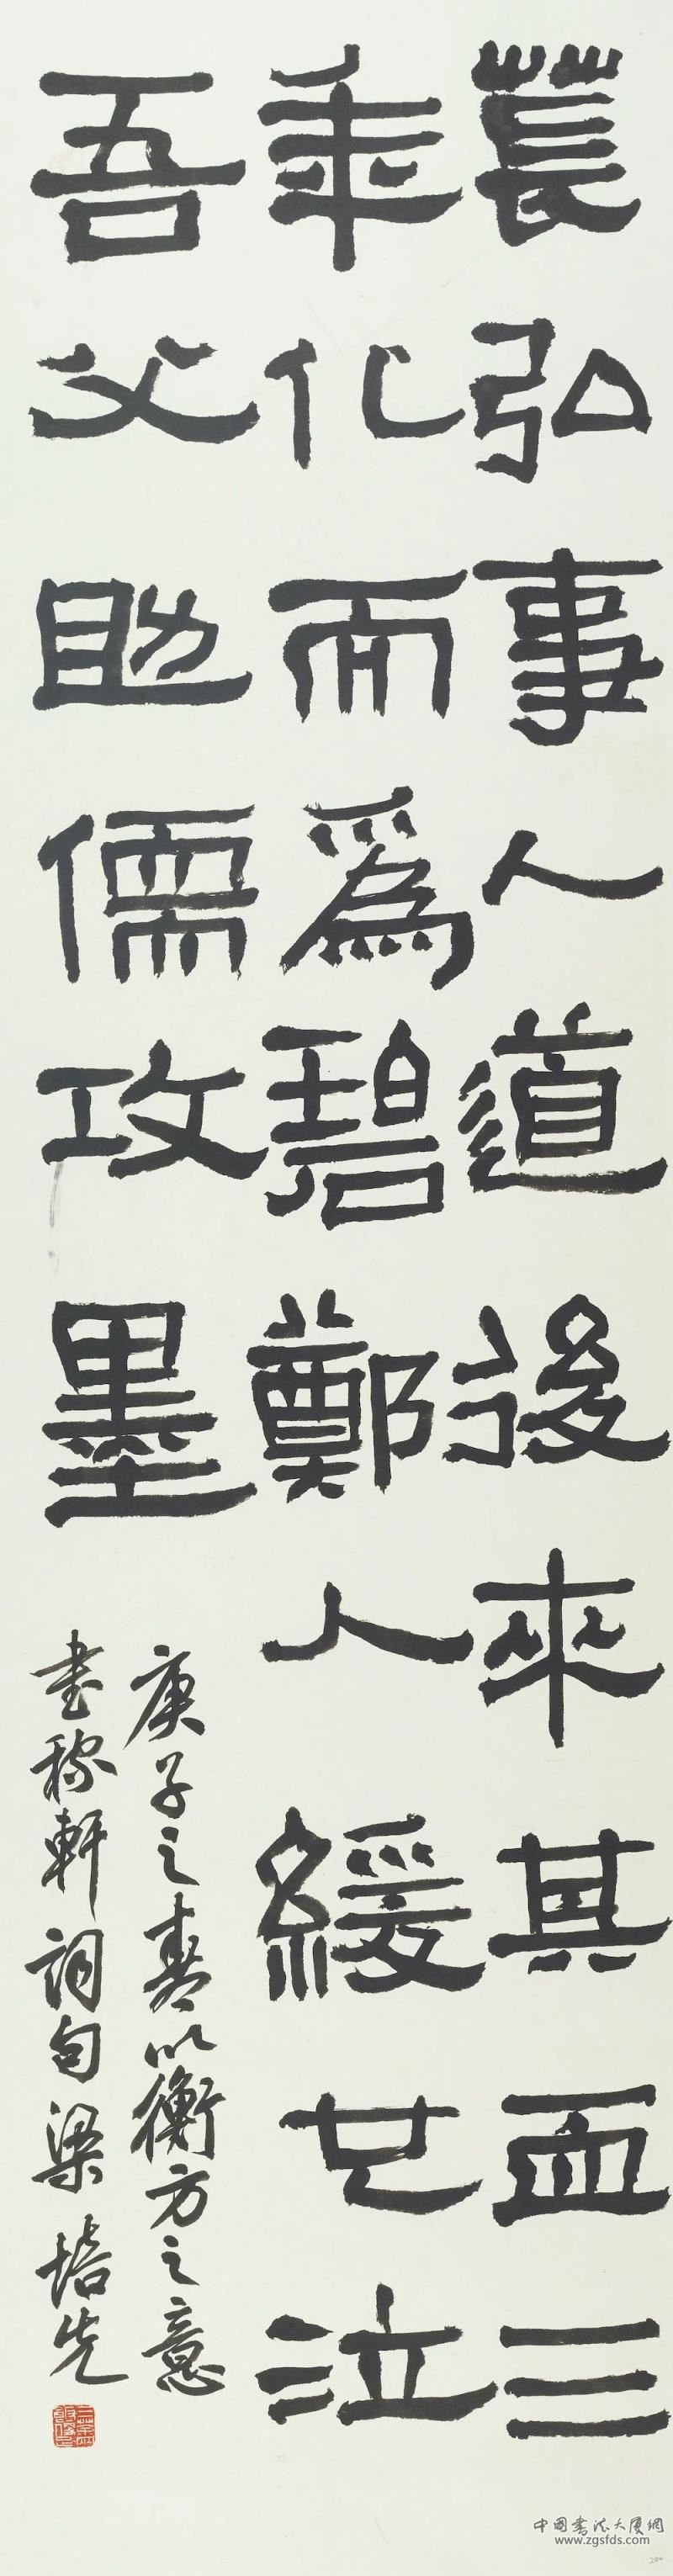 萇弘事人道後來其血三
年化而爲碧鄭人緩也泣
吾父助儒攻墨
庚子之春以衡方之意
書稼軒詞句梁培先
中國書法大廈網
www.zgsfds.com